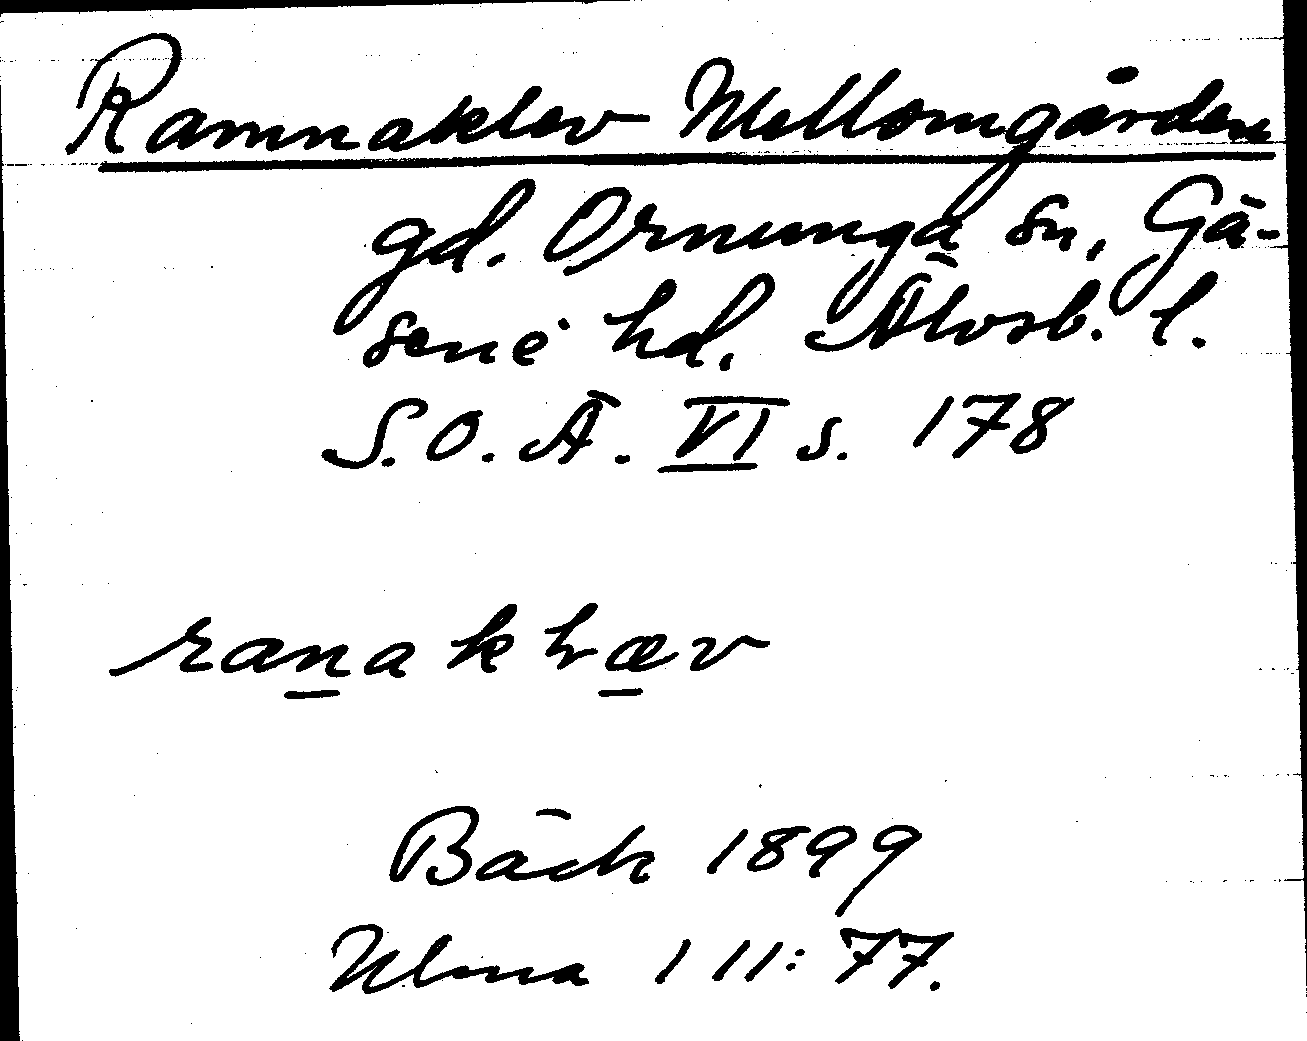 Ramnaklev Mellomgården
gd. Ornunga sn, Gä-
sene hd. Älvsb. l.
S.O.Ä. VI s. 178
ranaklæv
Bäck 1899
Ulma 111:77.